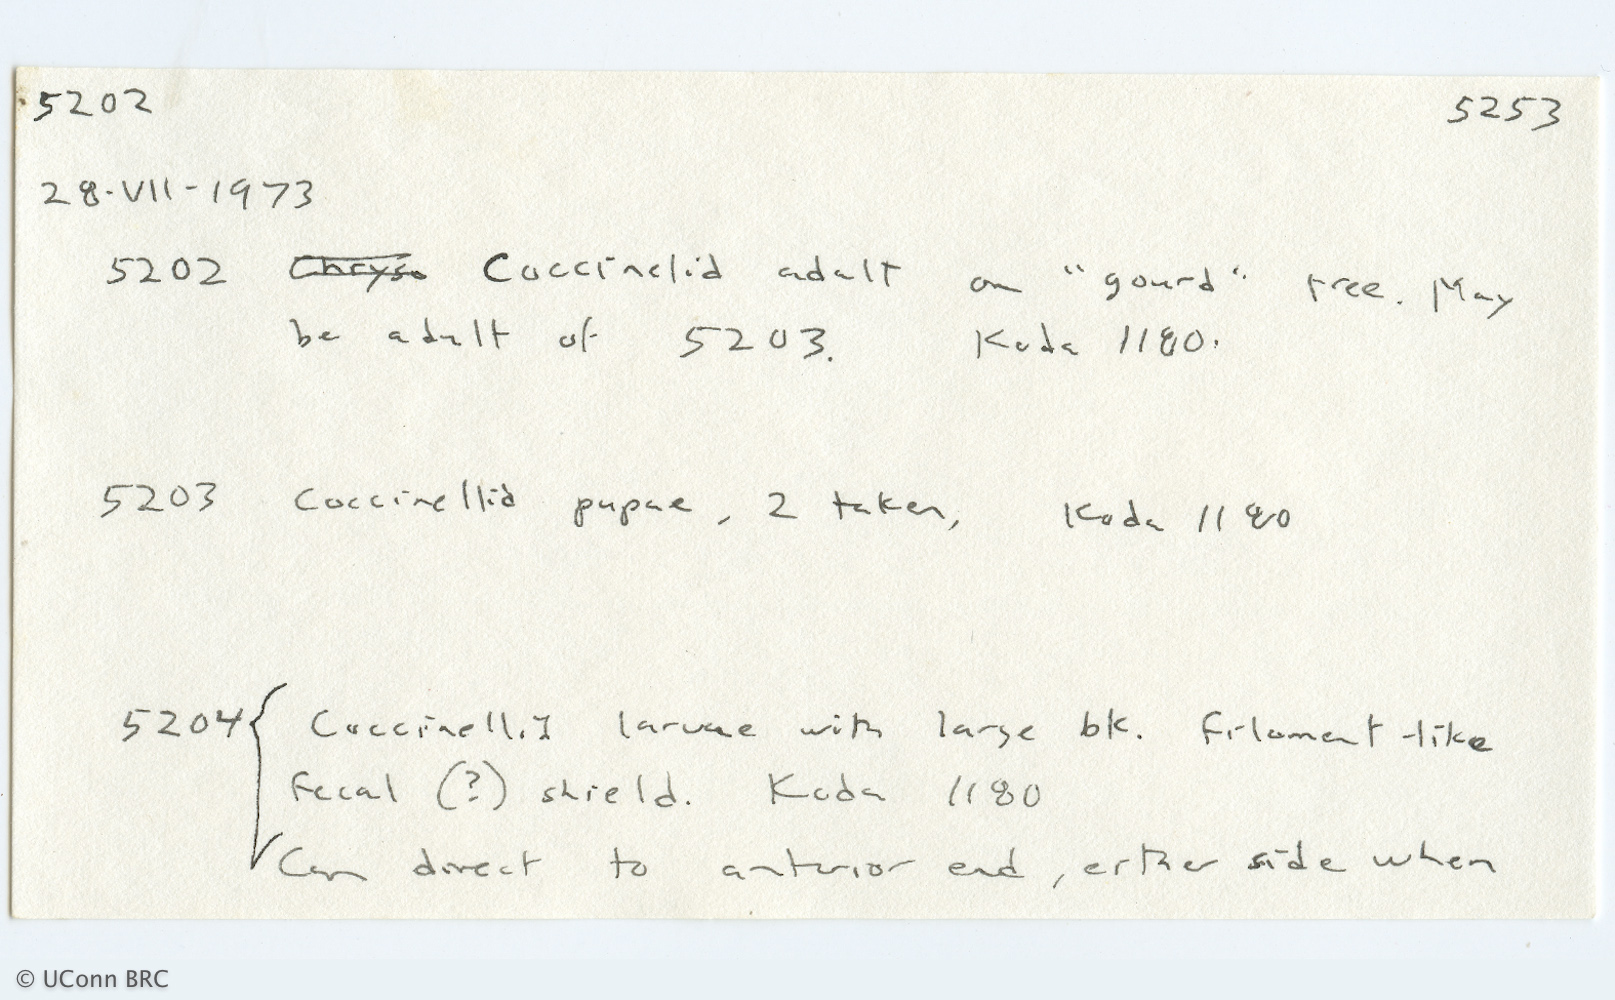 5202 5253
28-VII-1973
5202 Chryso Coccinelid adult on "gourd" tree. May
be adult of 5203. Koda 1180.
5203 Coccinellid pupae, 2 taken, Koda 1180
5204 Coccinellid larvae with large bk. filament-like
fecal (?) shield. Koda 1180
Can direct to anterior end, either side when
© UConn BRC